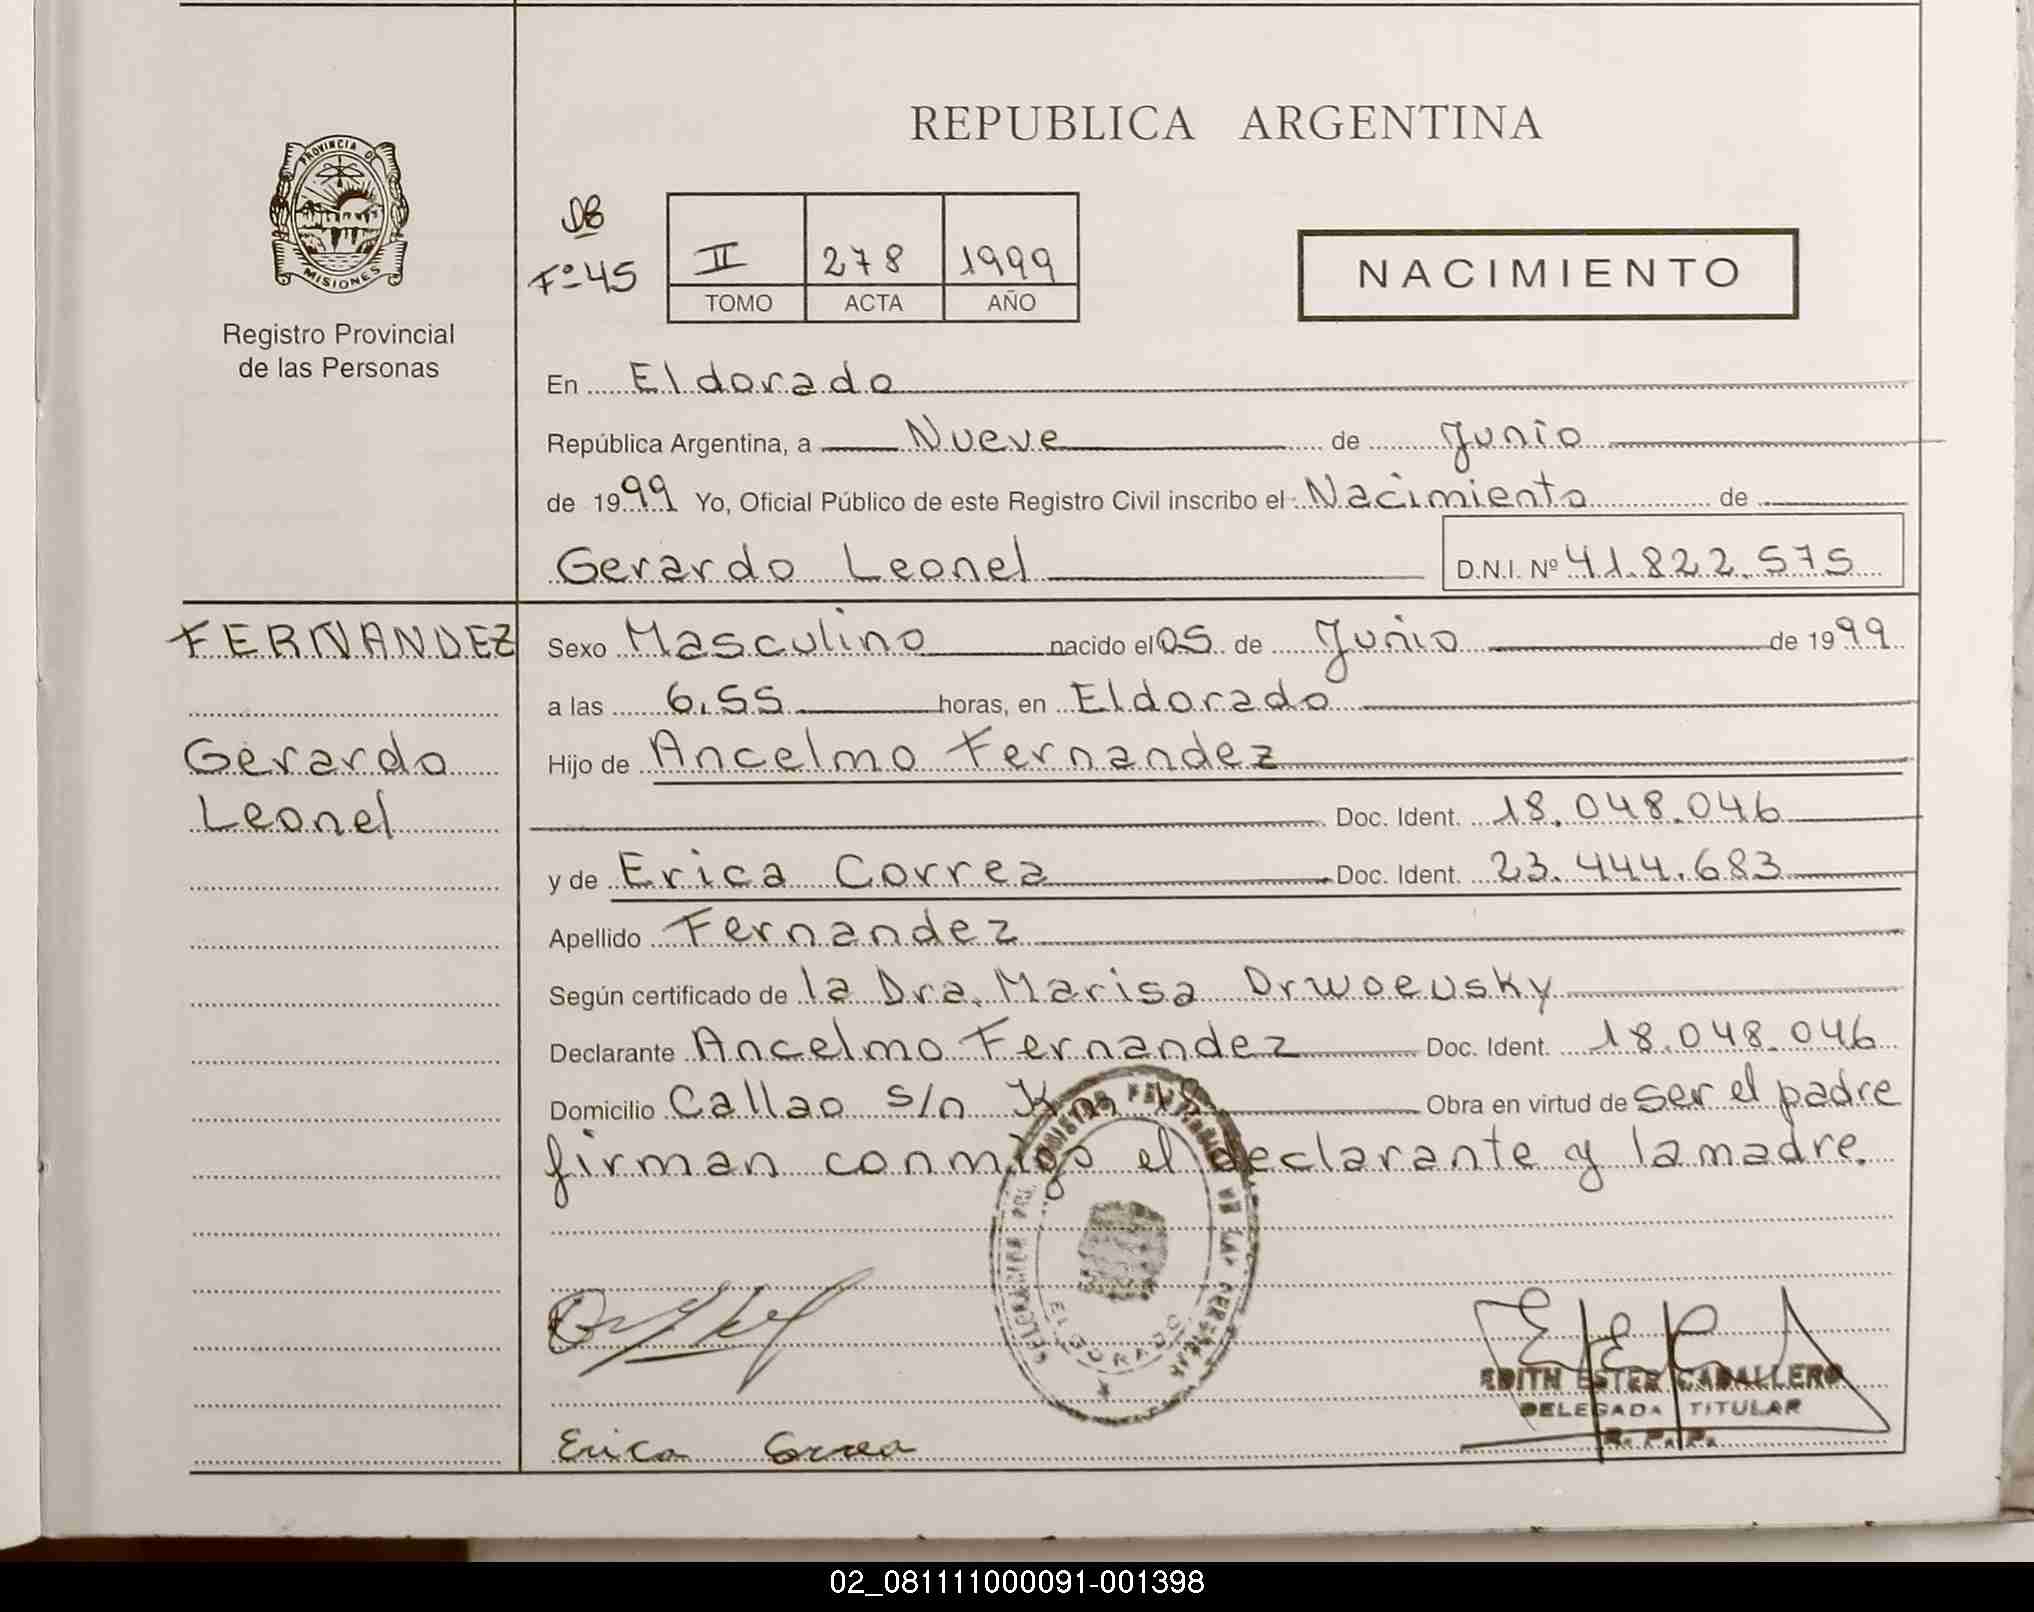 REPUBLICA ARGENTINA
PROVINCIA DE
MISIONES
Registro Provincial
de las Personas
Fº 45
II 278 1999
TOMO ACTA AÑO
NACIMIENTO
En Eldorado
República Argentina, a Nueve de Junio
de 1999 Yo, Oficial Público de este Registro Civil inscribo el Nacimiento de
Gerardo Leonel D.N.I. Nº 41.822.575
FERNANDEZ
Gerardo
Leonel
Sexo Masculino nacido el 05 de Junio de 1999
a las 6.55 horas, en Eldorado
Hijo de Ancelmo Fernandez
Doc. Ident. 18.048.046
y de Erica Correa Doc. Ident. 23.444.683
Apellido Fernandez
Según certificado de la Dra. Marisa Orwoeusky
Declarante Ancelmo Fernandez Doc. Ident. 18.048.046
Domicilio Callao s/n Km 18 Obra en virtud de ser el padre
firman conmigo el declarante y la madre.
ELDORADO
EDITH ESTER CABALLERO
DELEGADA TITULAR
R. P. P.
Erica Correa
02_081111000091-001398